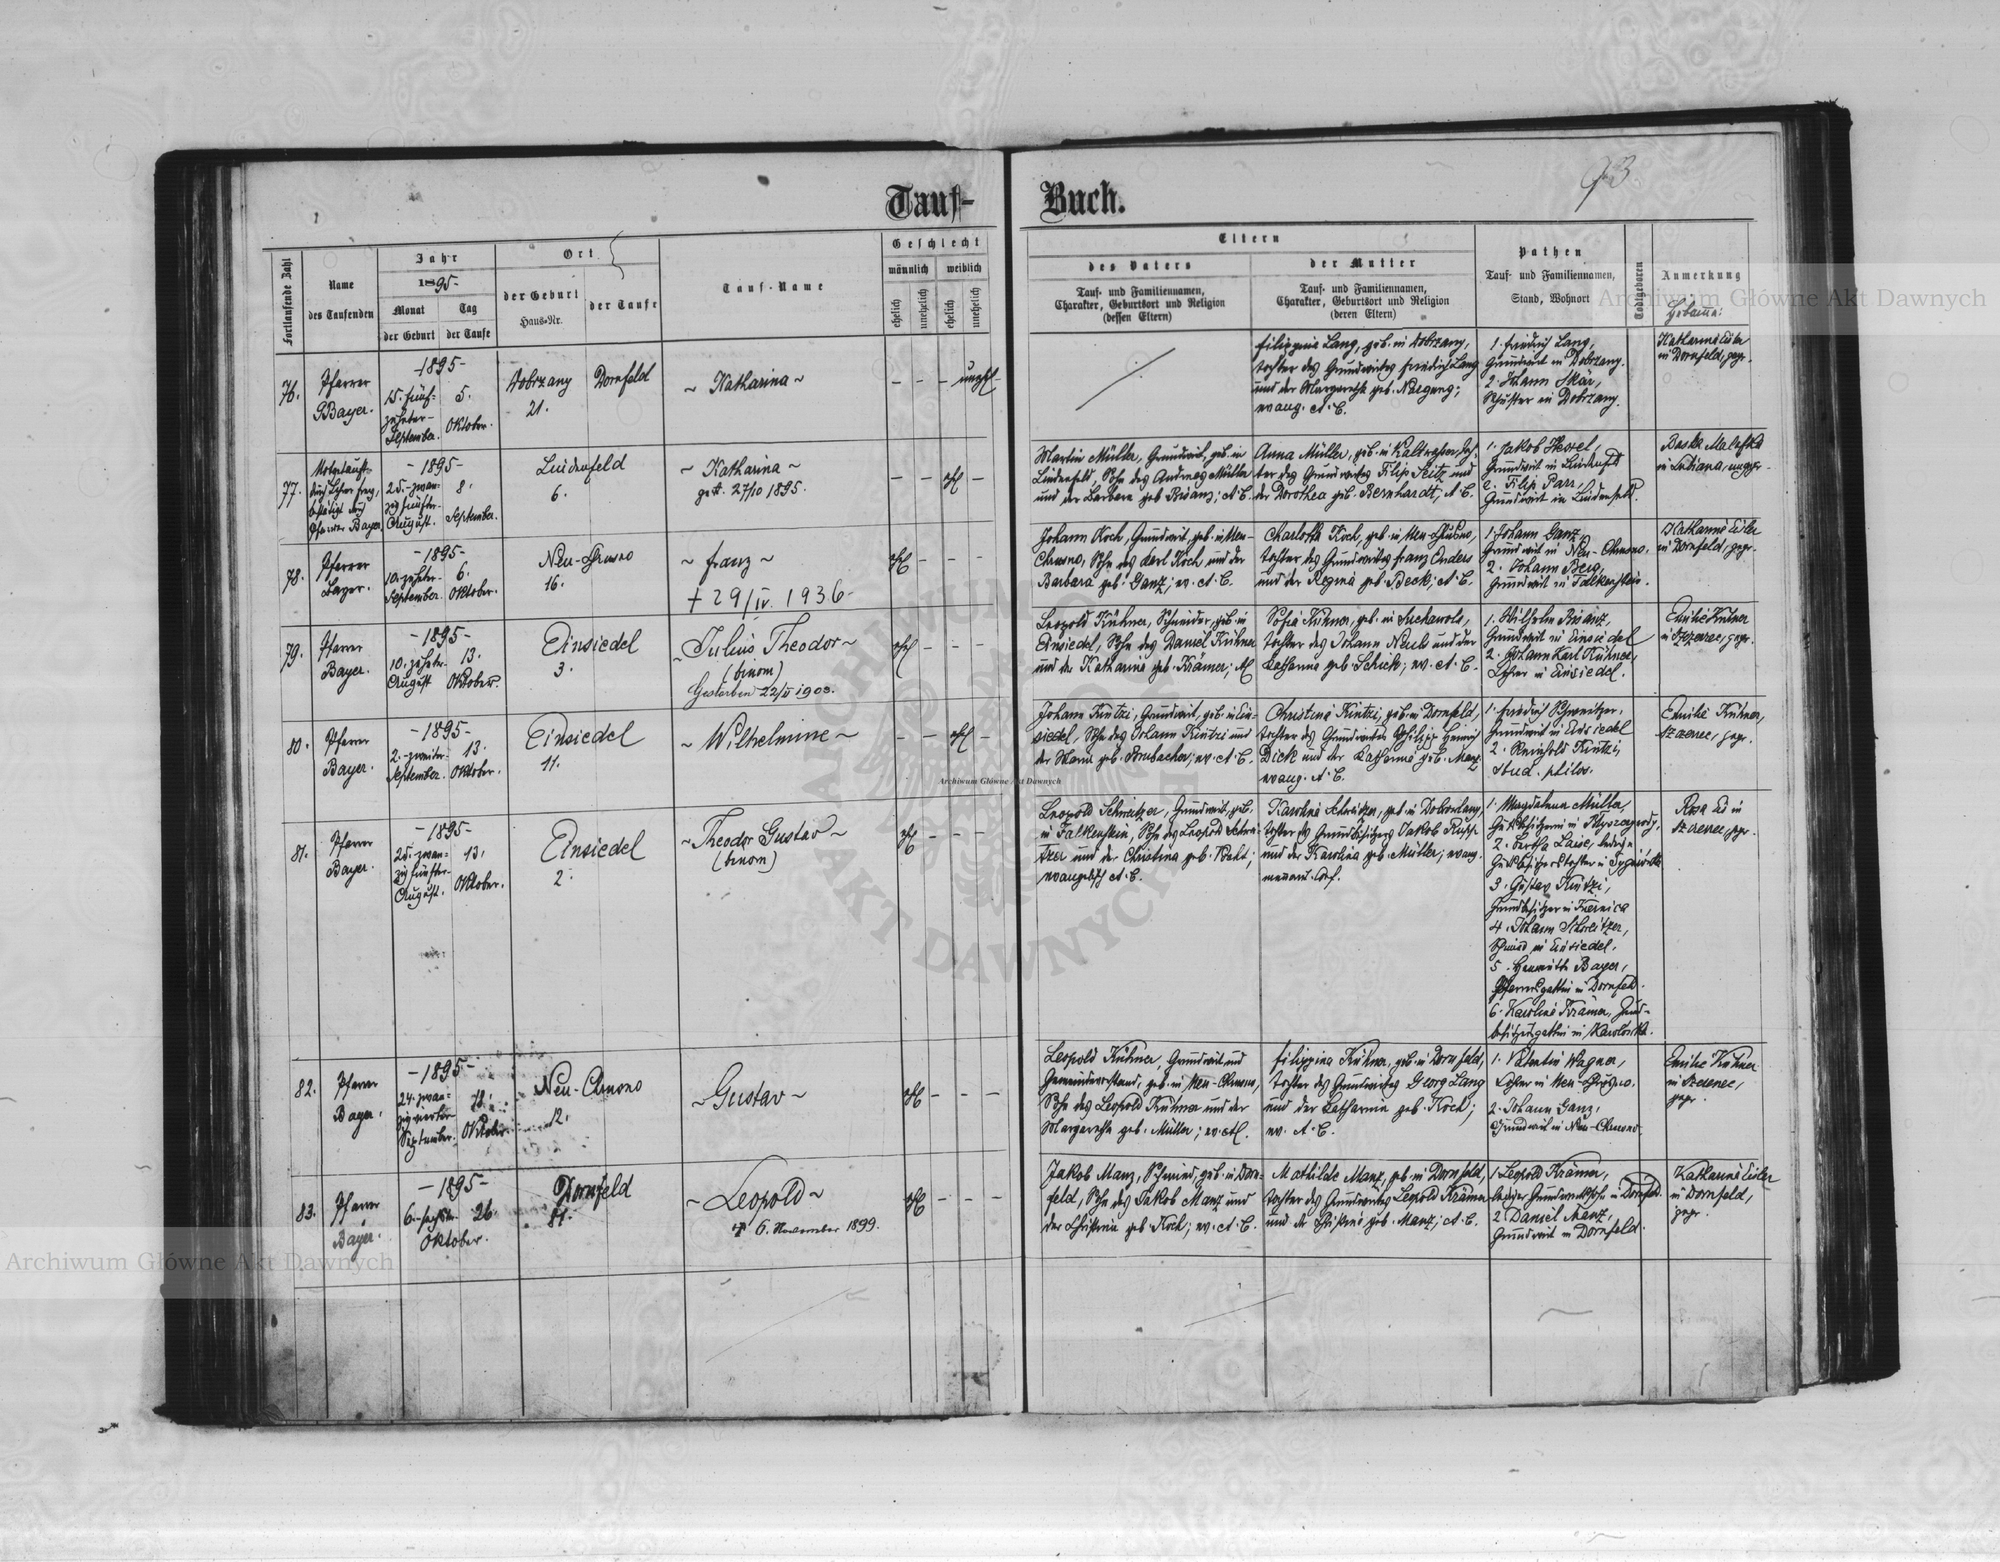 93
Tauf-
Buch.
Fortlaufende Zahl
Name
des Taufenden
Jahr
1895-
Monat
Tag
der Geburt
der Taufe
Ort
der Geburt
Haus-Nr.
der Taufe
Tauf-Name
Geschlecht
männlich
weiblich
ehelich
unehelich
ehelich
unehelich
Eltern
des Vaters
Tauf- und Familiennamen,
Charakter, Geburtsort und Religion
(dessen Eltern)
der Mutter
Tauf- und Familiennamen,
Charakter, Geburtsort und Religion
(deren Eltern)
Pathen
Tauf- und Familiennamen,
Stand, Wohnort
Todtgeboren
Anmerkung
Hebamme:
76.
Pfarrer
Bayer.
-1895-
15. fünf-
zehnter-
September.
5.
Oktober.
Dobrzany
21.
Dornfeld
~ Katharina ~
- - - unehl.
Filippine Lang, geb. in Dobrzany,
Tochter des Grundwirtes Friedrich Lang
und der Margarethe geb.
evang. A. C.
1. Friedrich Lang,
Grundwirt in Dobrzany.
2. Johann Skär,
Schuster in Dobrzany.
Katharina Eisler
in Dornfeld, gepr.
77.
Notgetauft
durch Lehrer
bestätigt durch
Pfarrer Bayer.
-1895-
25.-zwan-
zigfünfter-
August.
8.
September.
Lindenfeld
6.
~ Katharina ~
gest. 27/10 1895.
- - ehl. -
Martin Müller, Grundwirt, geb. in
Lindenfeld, Sohn des Andreas Müller
und der Barbara geb. Bisanz; A. C.
Anna Müller, geb. in Kaltwasser, Toch-
ter des Grundwirtes Filip Seitz und
der Dorothea geb. Bernhardt; A. C.
1. Jakob Hexel,
Grundwirt in Lindenfeld
2. Filip Parr,
Grundwirt in Lindenfeld.
in Lubiana, ungepr.
78.
Pfarrer
Bayer.
-1895-
10. zehnter-
September.
6.
Oktober.
Neu-Chrusno
16.
~ Franz ~
† 29/IV. 1936-
ehl. - - -
Johann Koch, Grundwirt, geb. in Neu-
Chrusno, Sohn des Karl Koch und der
Barbara geb. Ganz; ev. A. C.
Charlotte Koch, geb. in Neu-Chrusno,
Tochter des Grundwirtes Franz Enders
und der Regina geb. Beck; A. C.
1. Johann Ganz,
Grundwirt in Neu-Chrusno.
2. Johann Berg,
Grundwirt in Falkenstein.
Katharina Eisler
in Dornfeld, gepr.
79.
Pfarrer
Bayer.
-1895-
10. zehnter
August
13.
Oktober.
Einsiedel
3.
~ Julius Theodor ~
(binom)
Gestorben 22/II 1903.
ehl. - - -
Leopold Kühner, Schneider, geb. in
Einsiedel, Sohn des Daniel Kühner
und der Katharina geb. Krämer; AC
Sofia Kühner, geb. in
Tochter des Johann und der
Katharina geb. Schick; ev. A. C.
1. Wilhelm Bisanz,
Grundwirt in Einsiedel
2. Johann Karl Kühner,
Lehrer in Einsiedel.
Emilie Kühner
in Szczerzec, gepr.
80.
Pfarrer
Bayer.
-1895-
2.-zweiter-
September.
13.
Oktober.
Einsiedel
11.
~ Wilhelmine ~
- - ehl. -
Johann Kintzi, Grundwirt, geb. in Ein-
siedel, Sohn des Johann Kintzi und
der Maria geb. Brubacher; ev. A. C.
Christina Kintzi, geb. in Dornfeld,
Tochter des Grundwirtes Philipp Heinrich
Dick und der Katharina geb. Manz
evang. A. C.
1. Friedrich Schweitzer,
Grundwirt in Einsiedel
2. Reinhold Kintzi,
stud. philos.
Emilie Kühner,
Szczerzec, gepr.
81.
Pfarrer
Bayer.
-1895-
25. zwan-
zigfünfter-
August.
13.
Oktober.
Einsiedel
2.
~ Theodor Gustav ~
(binom)
ehl. - - -
Leopold Schreitzer, Grundwirt, geb.
in Falkenstein, Sohn des Leopold Schrei-
tzer und der Christina geb.
evangelisch A. C.
Karolina Schreitzer, geb. in
Tochter des Grundbesitzers Jakob Rupp
und der Karolina geb. Müller; evang.
menonit. Conf.
1. Magdalena Müller,
Gutsbesitzerin in
2. Bertha Laise, ledige
Gutsbesitzerstochter in
3. Gustav Kintzi,
Grundbesitzer in Kiernica
4. Johann Schreitzer,
Schmied in Einsiedel.
5. Henriette Bayer,
Pfarrersgattin in Dornfeld.
6. Karoline Krämer, Grund-
besitzersgattin in
Szczerzec, gepr.
82.
Pfarrer
Bayer.
-1895-
24. zwan-
zigvierter
September.
18.
Oktober.
Neu-Chrusno
12.
~ Gustav ~
ehl. - - -
Leopold Kühner, Grundwirt und
Gemeindevorstand, geb. in Neu-Chrusno,
Sohn des Leopold Kühner und der
Margarethe geb. Müller; ev. AC.
Filippina Kühner, geb. in Dornfeld,
Tochter des Grundwirtes Georg Lang
und der Katharina geb. Koch;
ev. A. C.
1. Valentin Wagner,
Lehrer in Neu-Chrusno.
2. Johann Ganz,
Grundwirt in Neu-Chrusno.
Emilie Kühner
in Szczerzec,
gepr.
83.
Pfarrer
Bayer.
-1895-
6.-sechster
26.
Oktober.
Dornfeld
81.
~ Leopold ~
† 6. November 1899.
ehl. - - -
Jakob Manz, Schmied, geb. in Dorn-
feld, Sohn des Jakob Manz und
der Christina geb. Koch; ev. A. C.
Mathilde Manz, geb. in Dornfeld,
Tochter des Grundwirtes Leopold Krämer
und der Christina geb. Manz; A. C.
1. Leopold Krämer,
lediger Grundwirtssohn in Dornfeld.
2. Daniel Manz,
Grundwirt in Dornfeld.
Katharina Eisler
in Dornfeld,
gepr.
Archiwum Główne Akt Dawnych
Archiwum Główne Akt Dawnych
Archiwum Główne Akt Dawnych